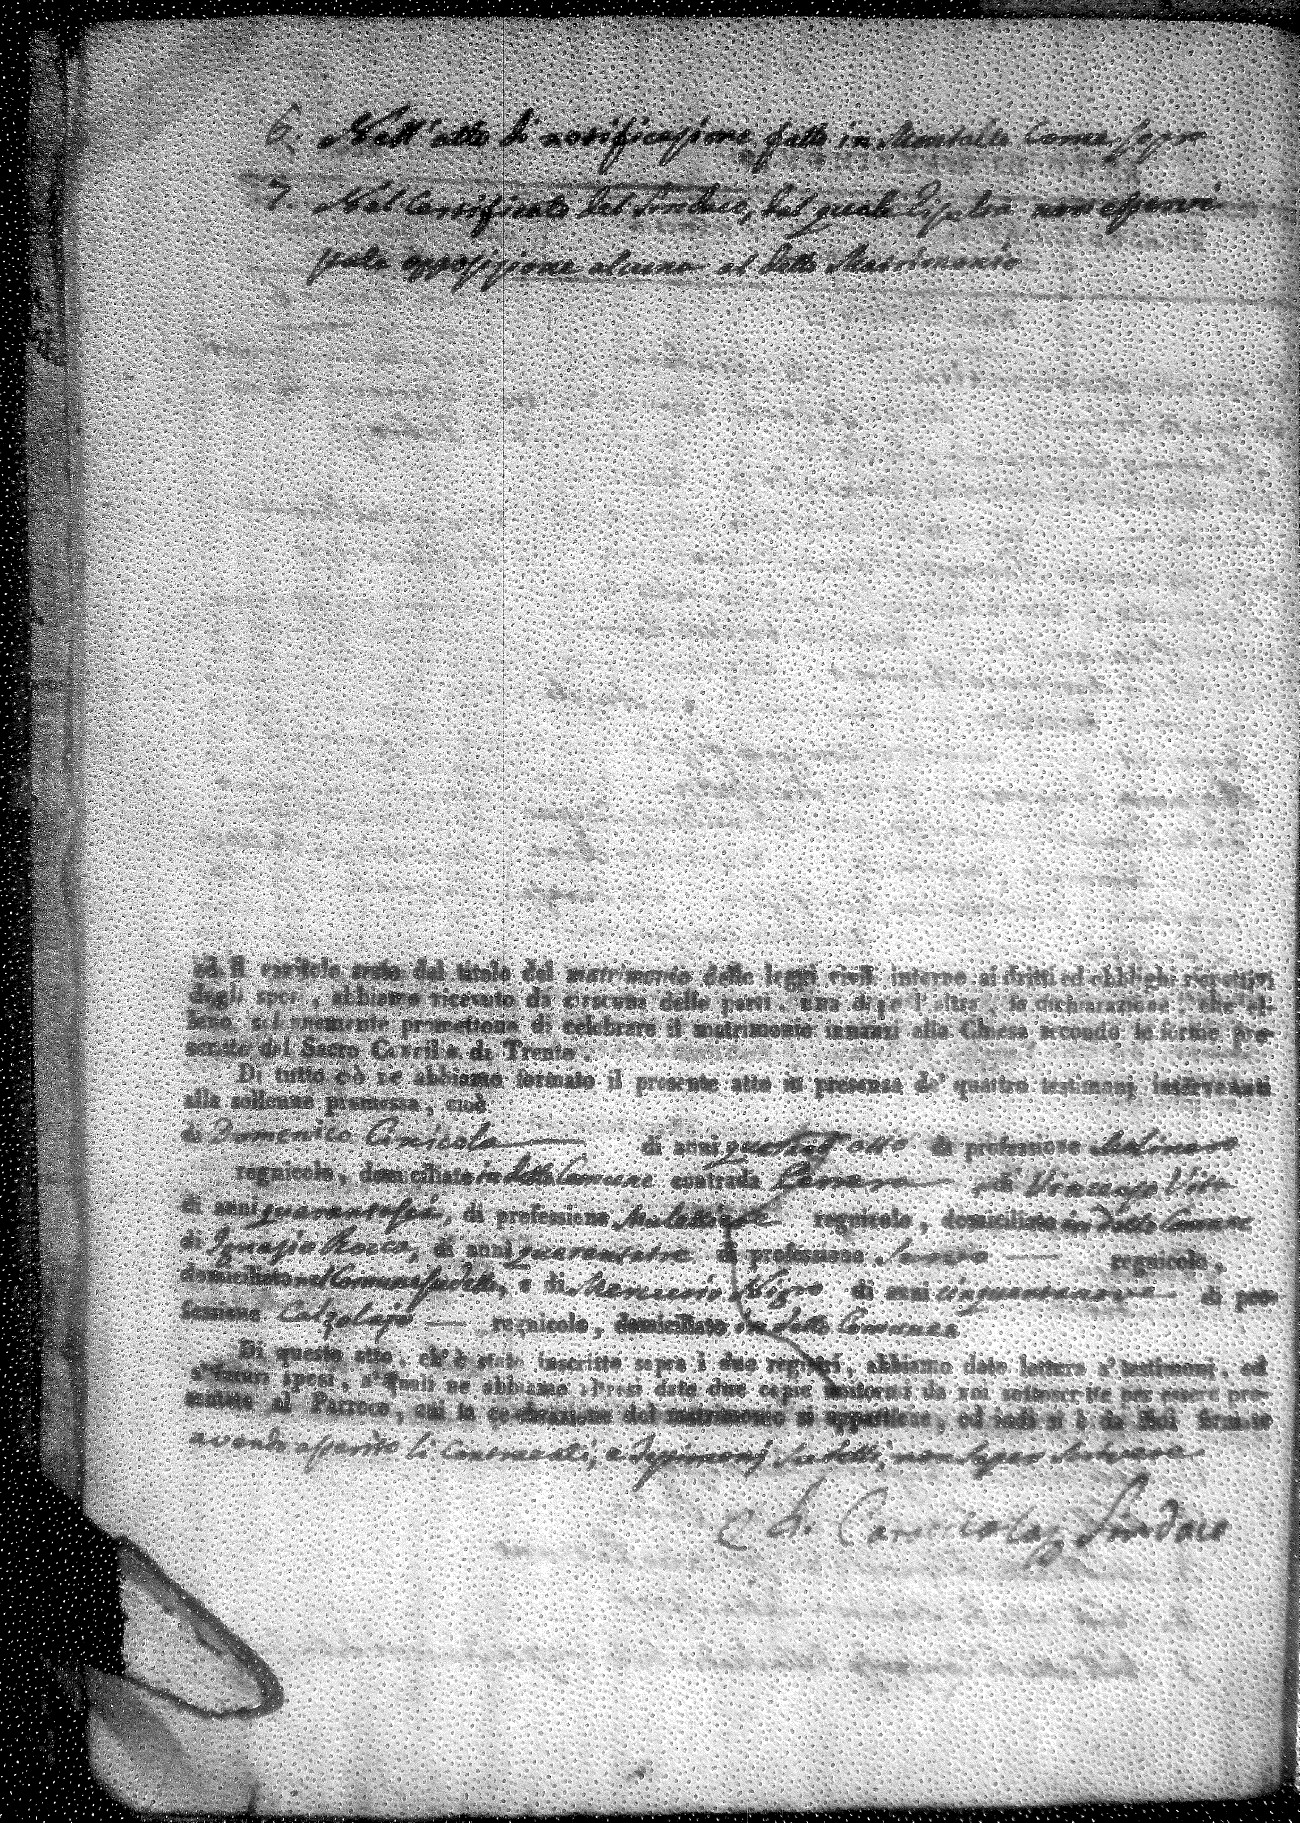 6. Nell'atto di notificazione fatto in Montalto Come sopra
7. Nel Certificato del Sindaco, dal quale risulta non esservi
stata opposizione alcuna al detto Matrimonio
ed il capitolo sesto del titolo del matrimonio delle leggi civili intorno ai dritti ed obblighi rispettivi
degli sposi, abbiamo ricevuto da ciascuna delle parti, una dopo l'altra, la dichiarazione, che el-
leno solennemente promettono di celebrare il matrimonio innanzi alla Chiesa secondo le forme pre-
scritte dal Sacro Concilio di Trento.
Di tutto ciò ne abbiamo formato il presente atto in presenza de' quattro testimonj intervenuti
alla sollenne promessa, cioè
di Domenico Cinicola di anni quarant'otto di professione
regnicolo, domiciliato in detto Comune contrada di Vincenzo Vita
di anni quarantasei, di professione Mulattiere regnicolo, domiciliato in detto Comune
di Ignazio Rocco, di anni quarantatre di professione regnicolo,
domiciliato nel Comune suddetto, e di Mercurio Nigro di anni cinquantanove di pro-
fessione Calzolajo regnicolo, domiciliato in detto Comune
Di questo atto, ch'è stato inscritto sopra i due registri, abbiamo dato lettura a' testimonj, ed
a' futuri sposi, a' quali ne abbiamo altresì date due copie uniformi da noi sottoscritte per essere pre-
sentate al Parroco, cui la celebrazione del matrimonio si appartiene, ed indi si è da Noi firmato
avendo asserito li Contraenti, e Testimonj sudetti, non saper scrivere
Sindaco